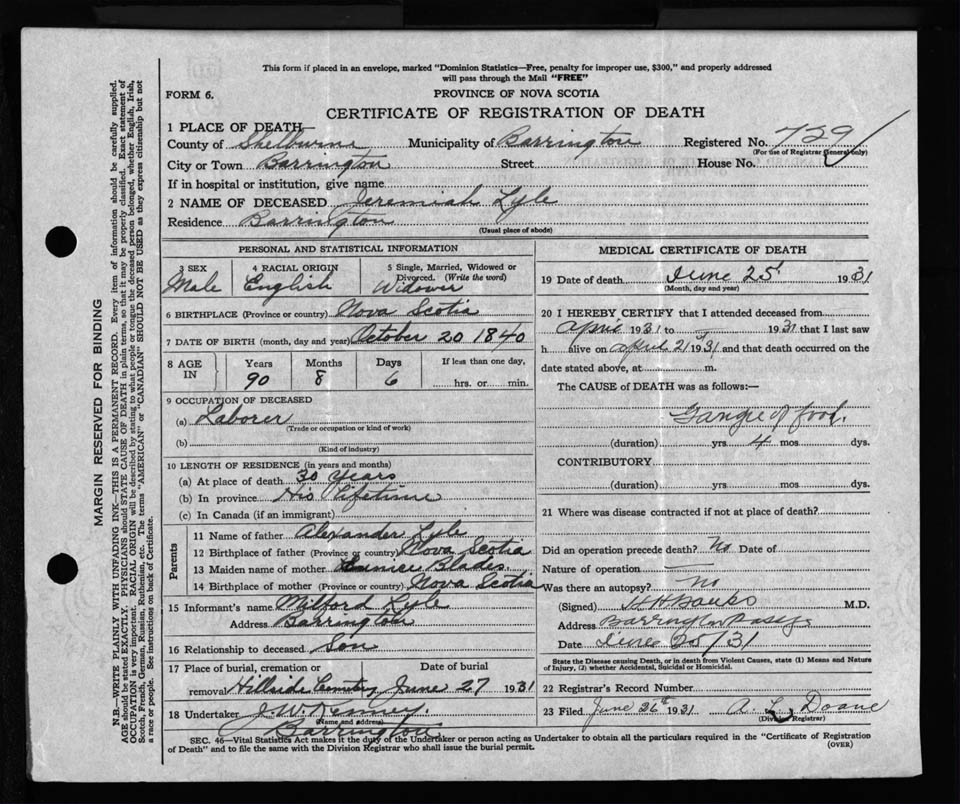 This form if placed in an envelope, marked "Dominion Statistics—Free, penalty for improper use, $300," and properly addressed
will pass through the Mail "FREE"
FORM 6.
PROVINCE OF NOVA SCOTIA
CERTIFICATE OF REGISTRATION OF DEATH
1 PLACE OF DEATH—
County of Shelburne Municipality of Barrington Registered No. 729
(For use of Registrar General only)
City or Town Barrington Street House No.
If in hospital or institution, give name
2 NAME OF DECEASED Jeremiah Lyle
Residence Barrington
(Usual place of abode)
PERSONAL AND STATISTICAL INFORMATION
3 SEX 4 RACIAL ORIGIN 5 Single, Married, Widowed or
Divorced. (Write the word)
Male English Widower
6 BIRTHPLACE (Province or country) Nova Scotia
7 DATE OF BIRTH (month, day and year) October 20 1840
8 AGE IN Years Months Days If less than one day,
90 8 6 hrs. or min.
9 OCCUPATION OF DECEASED
(a) Laborer
(Trade or occupation or kind of work)
(b)
(Kind of industry)
10 LENGTH OF RESIDENCE (in years and months)
(a) At place of death 30 Years
(b) In province His Lifetime
(c) In Canada (if an immigrant)
Parents
11 Name of father Alexander Lyle
12 Birthplace of father (Province or country) Nova Scotia
13 Maiden name of mother Eunice Blades
14 Birthplace of mother (Province or country) Nova Scotia
15 Informant's name Milford Lyle
Address Barrington
16 Relationship to deceased Son
17 Place of burial, cremation or Date of burial
removal Hillside Cemetry June 27 1931
18 Undertaker J. W. Kenney.
(Name and address)
Barrington
MEDICAL CERTIFICATE OF DEATH
19 Date of death June 25 1931
(Month, day and year)
20 I HEREBY CERTIFY that I attended deceased from
April 1931 to 1931 that I last saw
h alive on April 21 1931 and that death occurred on the
date stated above, at m.
The CAUSE of DEATH was as follows:—
foot.
(duration) yrs 4 mos dys.
CONTRIBUTORY
(duration) yrs. mos. dys.
21 Where was disease contracted if not at place of death?
Did an operation precede death? No Date of
Nature of operation
Was there an autopsy? No
(Signed) M.D.
Address Barrington Passage
Date June 25/31
State the Disease causing Death, or in death from Violent Causes, state (1) Means and Nature
of Injury, (2) whether Accidental, Suicidal or Homicidal.
22 Registrar's Record Number
23 Filed June 26th 1931 A. L. Doane
(Division Registrar)
SEC. 46—Vital Statistics Act makes it the duty of the Undertaker or person acting as Undertaker to obtain all the particulars required in the "Certificate of Registration
of Death" and to file the same with the Division Registrar who shall issue the burial permit.
(OVER)
MARGIN RESERVED FOR BINDING
N.B.—WRITE PLAINLY WITH UNFADING INK—THIS IS A PERMANENT RECORD. Every item of information should be carefully supplied.
AGE should be stated EXACTLY. PHYSICIANS should STATE CAUSE OF DEATH in plain terms, so that it may be properly classified. Exact statement of
OCCUPATION is very important. RACIAL ORIGIN will be described by stating to what people or tongue the deceased person belonged, whether English, Irish,
Scotch, French, German, Russian, Ruthenian, etc. The terms "AMERICAN" or "CANADIAN" SHOULD NOT BE USED as they express citizenship but not
a race or people. See instructions on back of Certificate.